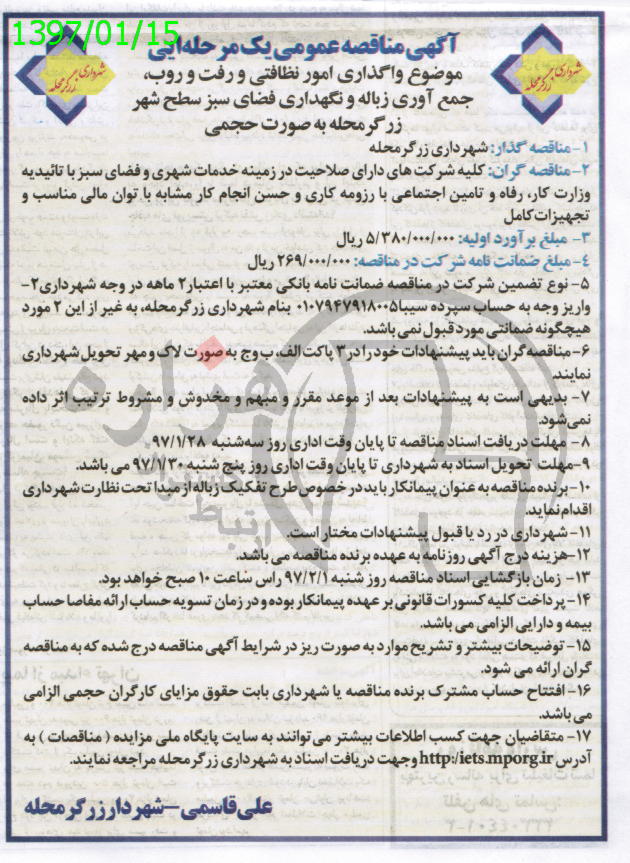 1397/01/15
آگهی مناقصه عمومی یک مرحله‌ایی
موضوع واگذاری امور نظافتی و رفت و روب،
جمع آوری زباله و نگهداری فضای سبز سطح شهر
زرگرمحله به صورت حجمی
شهرداری زرگر محله
شهرداری زرگر محله
۱- مناقصه گذار: شهرداری زرگرمحله
۲- مناقصه گران: کلیه شرکت های دارای صلاحیت در زمینه خدمات شهری و فضای سبز با تائیدیه
وزارت کار، رفاه و تامین اجتماعی با رزومه کاری و حسن انجام کار مشابه با توان مالی مناسب و
تجهیزات کامل
۳- مبلغ برآورد اولیه: ۵/۳۸۰/۰۰۰/۰۰۰ ریال
۴- مبلغ ضمانت نامه شرکت در مناقصه: ۲۶۹/۰۰۰/۰۰۰ ریال
۵- نوع تضمین شرکت در مناقصه ضمانت نامه بانکی معتبر با اعتبار۲ ماهه در وجه شهرداری۲-
واریز وجه به حساب سپرده سیبا۰۱۰۷۹۴۷۹۱۸۰۰۵ بنام شهرداری زرگرمحله، به غیر از این ۲ مورد
هیچگونه ضمانتی مورد قبول نمی باشد.
۶- مناقصه گران باید پیشنهادات خود را در۳ پاکت الف، ب وج به صورت لاک و مهر تحویل شهرداری
نمایند.
۷- بدیهی است به پیشنهادات بعد از موعد مقرر و مبهم و مخدوش و مشروط ترتیب اثر داده
نمی‌شود.
۸- مهلت دریافت اسناد مناقصه تا پایان وقت اداری روز سه‌شنبه ۹۷/۱/۲۸
۹-مهلت تحویل اسناد به شهرداری تا پایان وقت اداری روز پنج شنبه ۹۷/۱/۳۰ می باشد.
۱۰- برنده مناقصه به عنوان پیمانکار باید در خصوص طرح تفکیک زباله از مبدا تحت نظارت شهرداری
اقدام نماید.
۱۱- شهرداری در رد یا قبول پیشنهادات مختار است.
۱۲-هزینه درج آگهی روزنامه به عهده برنده مناقصه می باشد.
۱۳- زمان بازگشایی اسناد مناقصه روز شنبه ۹۷/۲/۱ راس ساعت ۱۰ صبح خواهد بود.
۱۴- پرداخت کلیه کسورات قانونی بر عهده پیمانکار بوده و در زمان تسویه حساب ارائه مفاصا حساب
بیمه و دارایی الزامی می باشد.
۱۵- توضیحات بیشتر و تشریح موارد به صورت ریز در شرایط آگهی مناقصه درج شده که به مناقصه
گران ارائه می شود.
۱۶- افتتاح حساب مشترک برنده مناقصه یا شهرداری بابت حقوق مزایای کارگران حجمی الزامی
می باشد.
۱۷- متقاضیان جهت کسب اطلاعات بیشتر می توانند به سایت پایگاه ملی مزایده ( مناقصات ) به
آدرس http:/iets.mporg.ir وجهت دریافت اسناد به شهرداری زرگرمحله مراجعه نمایند.
علی قاسمی – شهردار زرگر محله
هزاره